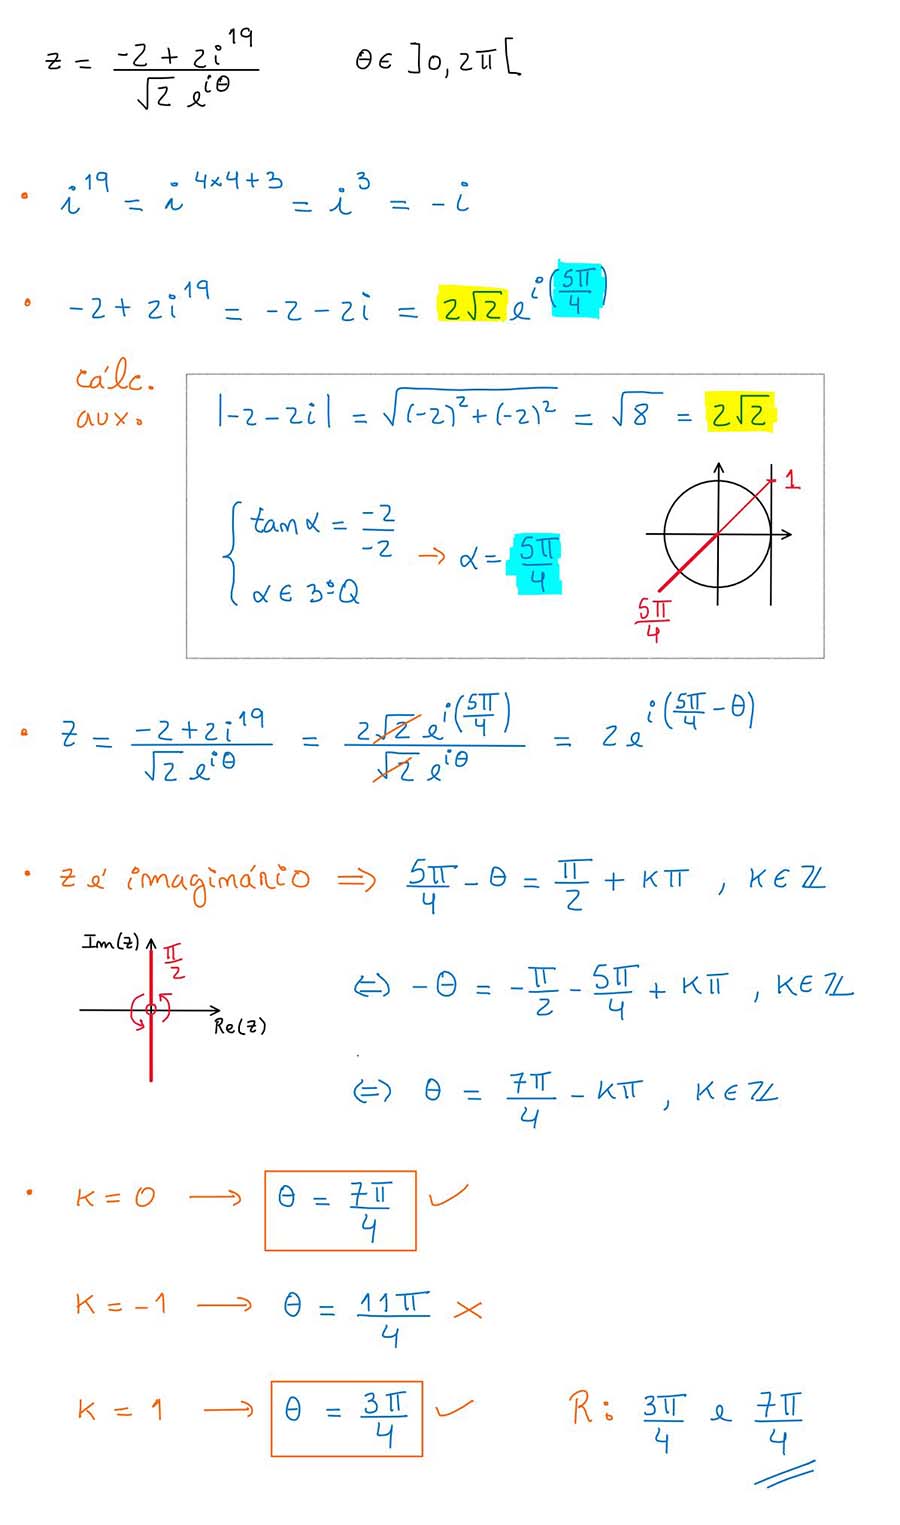 z = (-2 + 2i^19)/(√2 e^(iθ))   θ ∈ ]0, 2π[
• i^19 = i^(4×4+3) = i^3 = -i
• -2 + 2i^19 = -2 - 2i = 2√2 e^(i(5π/4))
cálc.
aux.
|-2-2i| = √((-2)^2+(-2)^2) = √8 = 2√2
{ tan α = -2/-2
→ α = 5π/4
α ∈ 3ºQ
1
5π/4
• z = (-2+2i^19)/(√2 e^(iθ)) = (2√2 e^(i(5π/4)))/(√2 e^(iθ)) = 2e^(i(5π/4 - θ))
• z é imaginário ⇒ 5π/4 - θ = π/2 + kπ , k ∈ ℤ
Im(z)
π/2
Re(z)
⇔ -θ = -π/2 - 5π/4 + kπ , k ∈ ℤ
⇔ θ = 7π/4 - kπ , k ∈ ℤ
• k = 0 → θ = 7π/4 ✓
k = -1 → θ = 11π/4 ×
k = 1 → θ = 3π/4 ✓ R: 3π/4 e 7π/4